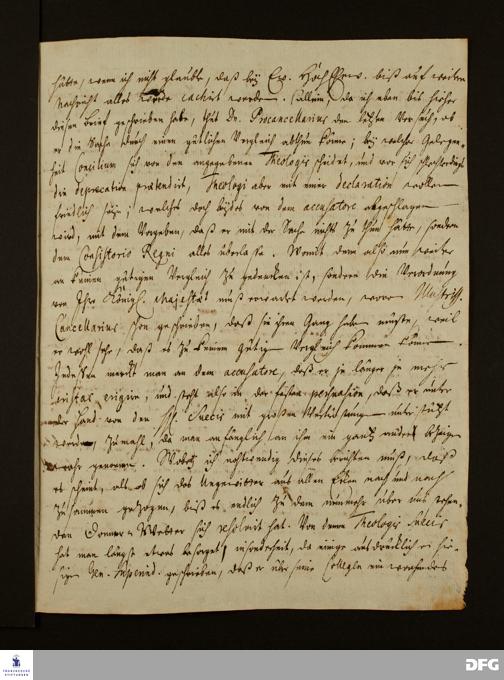 hätte, wenn ich nicht glaubte, daß bey Ew. HochEhrw. biß auf weitere
Nachricht alles werde cachirt werden. Allein, da ich eben biß hieher
diesen Brief geschrieben habe, thut Dn. Procancellarius den letzten Versuch, ob
er die Sache durch einen gütlichen Vergleich abthun könne; bey welcher Gelegen-
heit Concilium sich von den angegebenen Theologis scheidet, und vor sich schlechterdings
die deprecation praetendirt, Theologi aber mit einer declaration wollen
friedlich seyn; welches doch beydes von dem accusatore abgeschlagen
wird, mit dem Vorgeben, daß er mit der Sache nichts zu thun hätte, sondern
dem Consistorio Regni alles überlaße. Womit denn also nun weiter
an keinen gütigen Vergleich zu gedenken ist, sondern die Verordnung
von Ihro Königl. Majestät muß erwartet werden, wovon Illustriss.
Cancellarius schon geschrieben, daß sie ihren Gang haben müste, weil
er wohl sehe, daß es zu keinem gütigen Vergleich kommen könne.
Indeßen merckt man an dem accusatore, daß er je länger je mehr
cristas erigire, und steht also in der festen persuasion, daß er unter
der Hand von den St. Suecis mit großen Vertröstungen unterstützt
werde, zumahl, da man anfänglich an ihm ein gantz anders Bezeigen
wahr genommen. Wobey ich nothwendig dieses berichten muß, daß
es scheint, als ob sich das Ungewitter aus allen Ecken nach und nach
zusammen gezogen, biß es endlich zu dem nunmehr über uns stehen-
den Donner-Wetter sich resolvirt hat. Von denen Theologis Suecis
hat man längst etwas besorget, insonderheit, da einige ausdrücklich an hie-
sigen Gen. Superind. geschrieben, daß er über seine Collegen ein wachendes